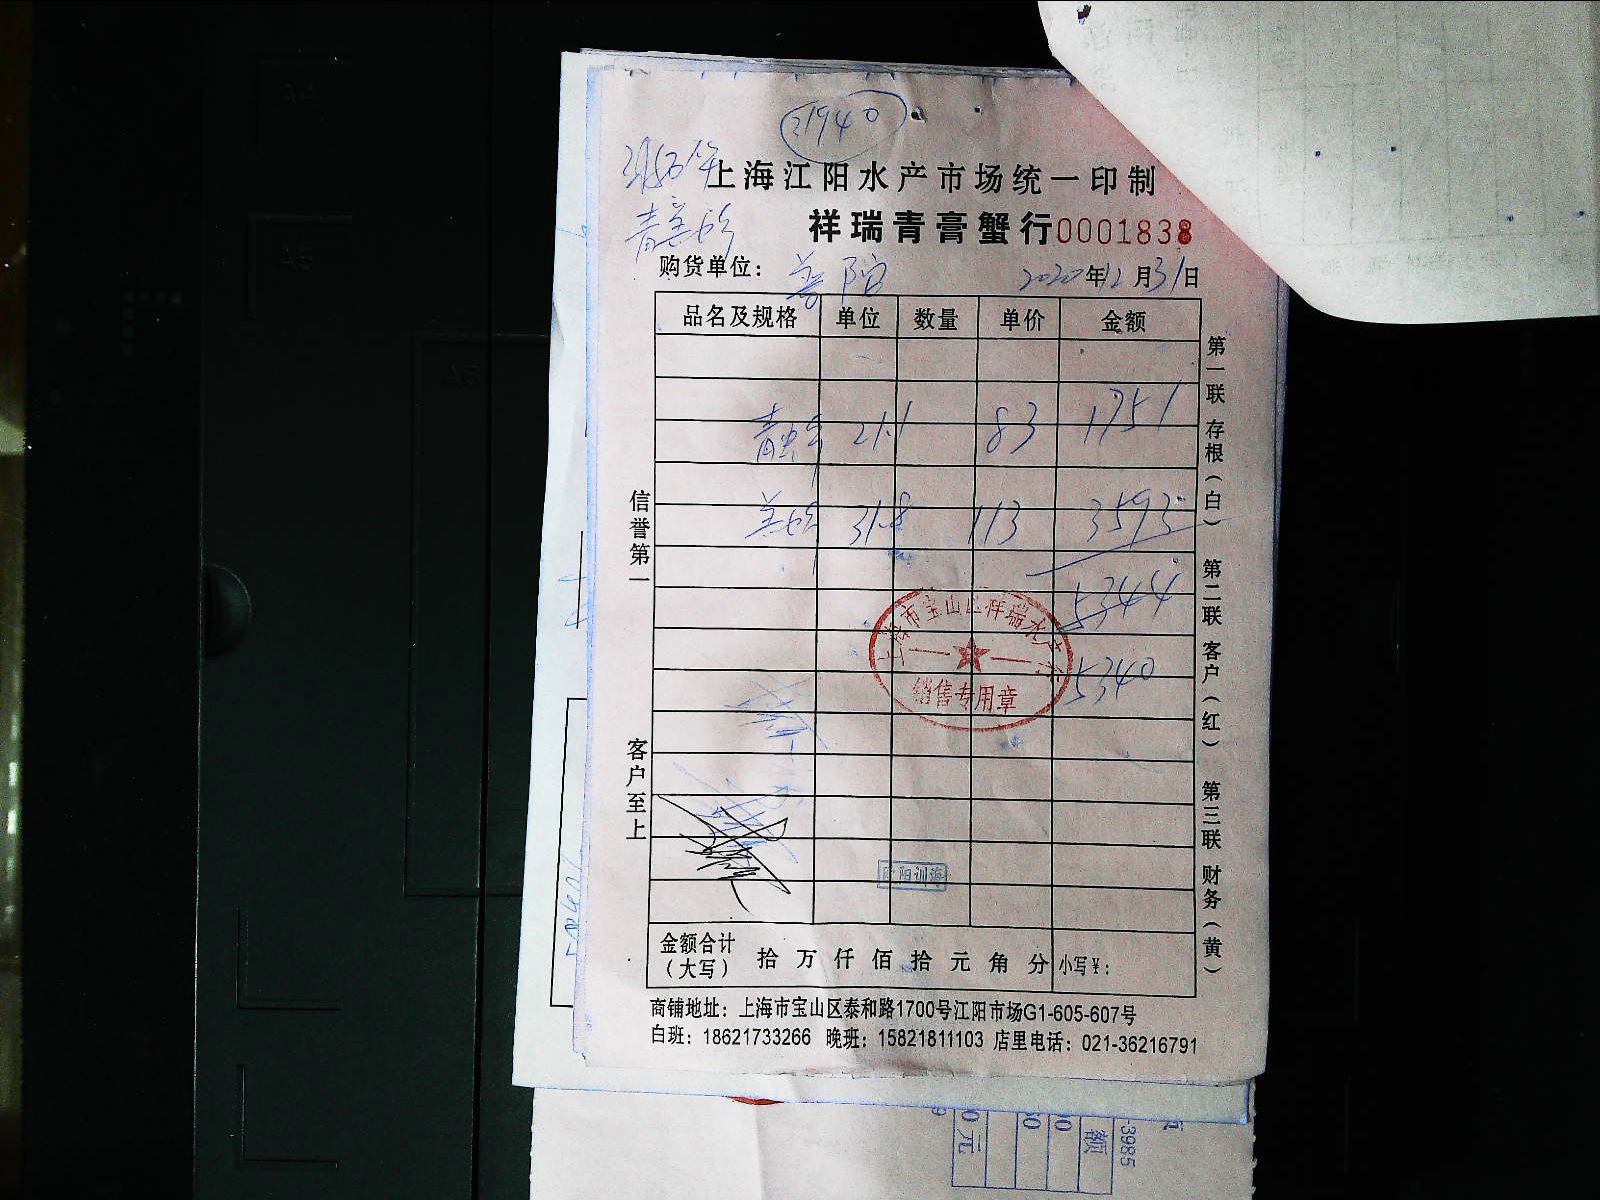 1940
上海江阳水产市场统一印制
祥瑞青膏蟹行 0001838
购货单位： 普陀 2020年12月31日
品名及规格 单位 数量 单价 金额
21.1 83 1751
31.8 113 3593
5344
5340
上海市宝山区祥瑞水产行
销售专用章
信誉第一
客户至上
第一联 存根（白） 第二联 客户（红） 第三联 财务（黄）
金额合计（大写） 拾 万 仟 佰 拾 元 角 分 小写￥：
商铺地址：上海市宝山区泰和路1700号江阳市场G1-605-607号
白班：18621733266 晚班：15821811103 店里电话：021-36216791
-3985
额
0元